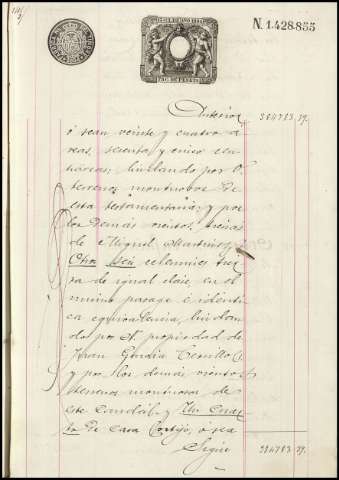 N. 1.428.855
Anterior 384783 39.
ó sean, veinte y cuatro á
reas, sesenta y cinco cen
tiáreas; lindando por O.
terrenos montuosos de
esta testamentaria, y por
los demás vientos, tierras
de Miguel Martinez
Otra seis celemines tier
ra de igual clase, en el
mismo parage é identi
ca equivalencia, lindan
do por N. propiedad de
Juan
y por los demás vientos
terrenos montuosos de
este caudal, y Un cuar
to de Casa Cortijo, ó sea
Sigue 384783 39.